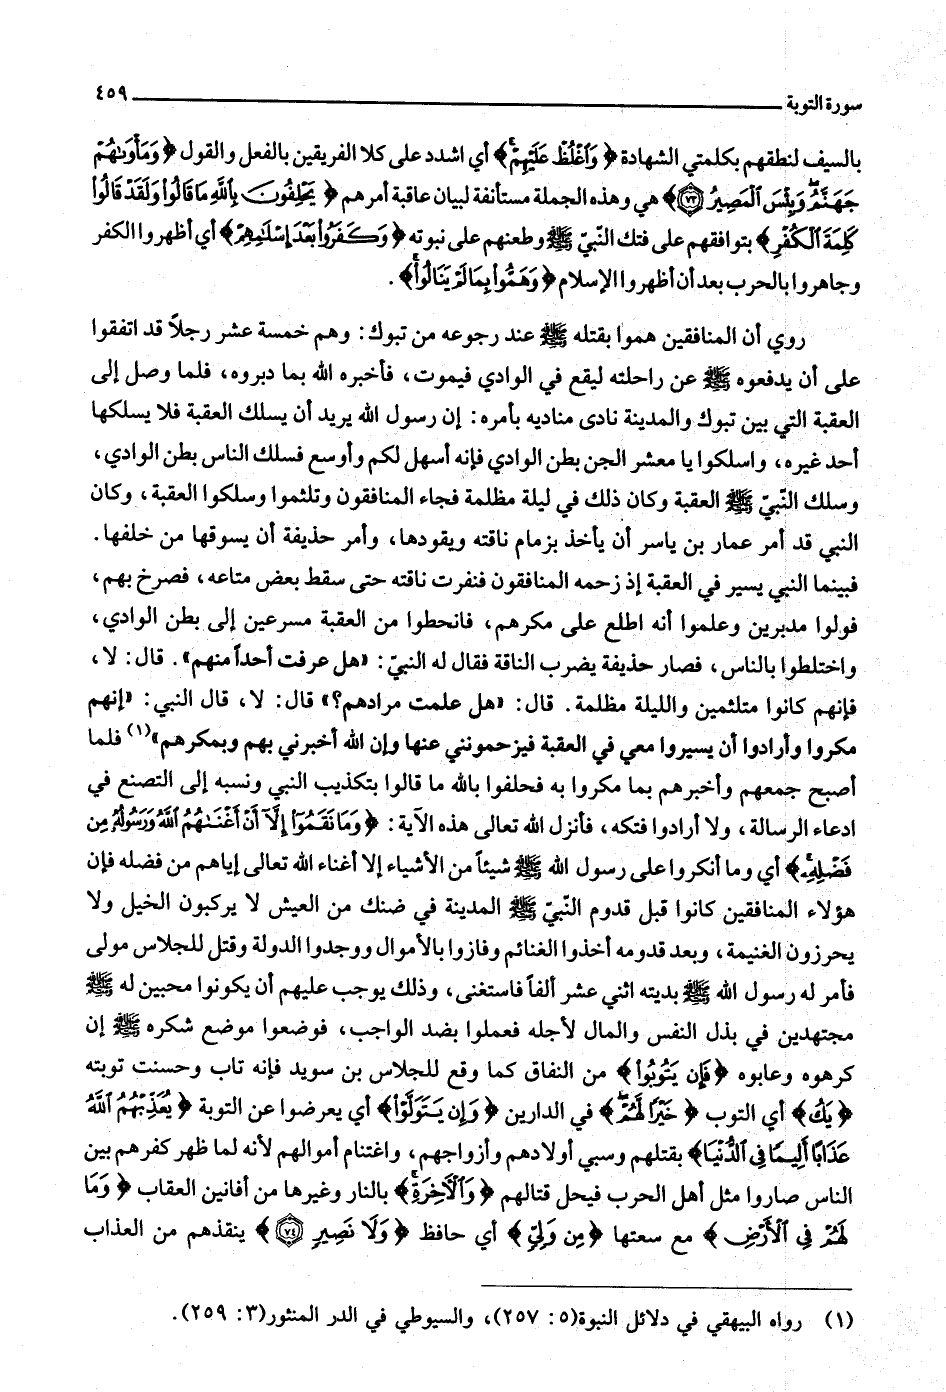 سورة التوبة ٤٥٩
بالسيف لنطقهم بكلمتي الشهادة ﴿ وَاغْلُظْ عَلَيْهِمْ ﴾ أي اشدد على كلا الفريقين بالفعل والقول ﴿ وَمَأْوَىٰهُمْ
جَهَنَّمُ وَبِئْسَ الْمَصِيرُ ٧٣ ﴾ هي وهذه الجملة مستأنفة لبيان عاقبة أمرهم ﴿ يَحْلِفُونَ بِاللَّهِ مَا قَالُوا وَلَقَدْ قَالُوا
كَلِمَةَ الْكُفْرِ ﴾ بتوافقهم على فتك النّبيّ ﷺ وطعنهم على نبوته ﴿ وَكَفَرُوا بَعْدَ إِسْلَامِهِمْ ﴾ أي أظهروا الكفر
وجاهروا بالحرب بعد أن أظهروا الإسلام ﴿ وَهَمُّوا بِمَا لَمْ يَنَالُوا ﴾ .
روي أن المنافقين هموا بقتله ﷺ عند رجوعه من تبوك: وهم خمسة عشر رجلاً قد اتفقوا
على أن يدفعوه ﷺ عن راحلته ليقع في الوادي فيموت، فأخبره الله بما دبروه، فلما وصل إلى
العقبة التي بين تبوك والمدينة نادى مناديه بأمره: إن رسول الله يريد أن يسلك العقبة فلا يسلكها
أحد غيره، واسلكوا يا معشر الجن بطن الوادي فإنه أسهل لكم وأوسع فسلك الناس بطن الوادي،
وسلك النّبيّ ﷺ العقبة وكان ذلك في ليلة مظلمة فجاء المنافقون وتلثموا وسلكوا العقبة، وكان
النبي قد أمر عمار بن ياسر أن يأخذ بزمام ناقته ويقودها، وأمر حذيفة أن يسوقها من خلفها.
فبينما النبي يسير في العقبة إذ زحمه المنافقون فنفرت ناقته حتى سقط بعض متاعه، فصرخ بهم،
فولوا مدبرين وعلموا أنه اطلع على مكرهم، فانحطوا من العقبة مسرعين إلى بطن الوادي،
واختلطوا بالناس، فصار حذيفة يضرب الناقة فقال له النبيّ: «هل عرفت أحداً منهم». قال: لا،
فإنهم كانوا متلثمين والليلة مظلمة. قال: «هل علمت مرادهم؟» قال: لا، قال النبي: «إنهم
مكروا وأرادوا أن يسيروا معي في العقبة فيزحمونني عنها وإن الله أخبرني بهم وبمكرهم»(١) فلما
أصبح جمعهم وأخبرهم بما مكروا به فحلفوا بالله ما قالوا بتكذيب النبي ونسبه إلى التصنع في
ادعاء الرسالة، ولا أرادوا فتكه، فأنزل الله تعالى هذه الآية: ﴿ وَمَا نَقَمُوا إِلَّا أَنْ أَغْنَىٰهُمُ اللَّهُ وَرَسُولُهُ مِن
فَضْلِهِ ﴾ أي وما أنكروا على رسول الله ﷺ شيئاً من الأشياء إلا أغناء الله تعالى إياهم من فضله فإن
هؤلاء المنافقين كانوا قبل قدوم النّبيّ ﷺ المدينة في ضنك من العيش لا يركبون الخيل ولا
يحرزون الغنيمة، وبعد قدومه أخذوا الغنائم وفازوا بالأموال ووجدوا الدولة وقتل للجلاس مولى
فأمر له رسول الله ﷺ بديته اثني عشر ألفاً فاستغنى، وذلك يوجب عليهم أن يكونوا محبين له ﷺ
مجتهدين في بذل النفس والمال لأجله فعملوا بضد الواجب، فوضعوا موضع شكره ﷺ إن
كرهوه وعابوه ﴿ فَإِن يَتُوبُوا ﴾ من النفاق كما وقع للجلاس بن سويد فإنه تاب وحسنت توبته
﴿ يَكُ ﴾ أي التوب ﴿ خَيْرًا لَّهُمْ ﴾ في الدارين ﴿ وَإِن يَتَوَلَّوْا ﴾ أي يعرضوا عن التوبة ﴿ يُعَذِّبْهُمُ اللَّهُ
عَذَابًا أَلِيمًا فِي الدُّنْيَا ﴾ بقتلهم وسبي أولادهم وأزواجهم، واغتنام أموالهم لأنه لما ظهر كفرهم بين
الناس صاروا مثل أهل الحرب فيحل قتالهم ﴿ وَالْآخِرَةِ ﴾ بالنار وغيرها من أفانين العقاب ﴿ وَمَا
لَهُمْ فِي الْأَرْضِ ﴾ مع سعتها ﴿ مِن وَلِيٍّ ﴾ أي حافظ ﴿ وَلَا نَصِيرٍ ٧٤ ﴾ ينقذهم من العذاب
(١) رواه البيهقي في دلائل النبوة(٥: ٢٥٧)، والسيوطي في الدر المنثور(٣: ٢٥٩).